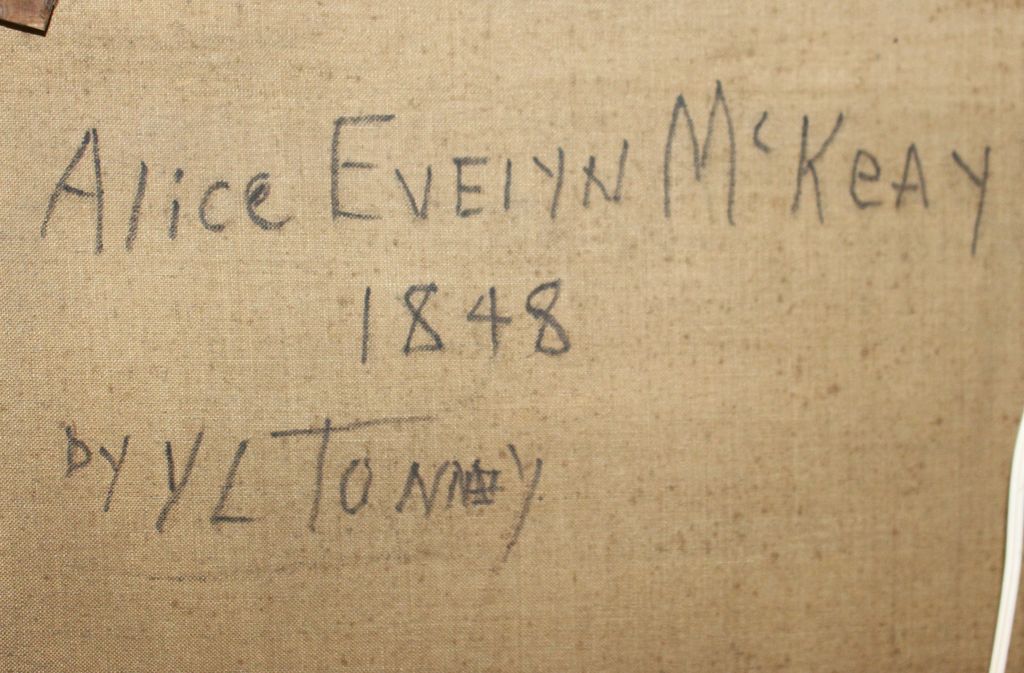 Alice EvElyN McKeAy
1848
by YL